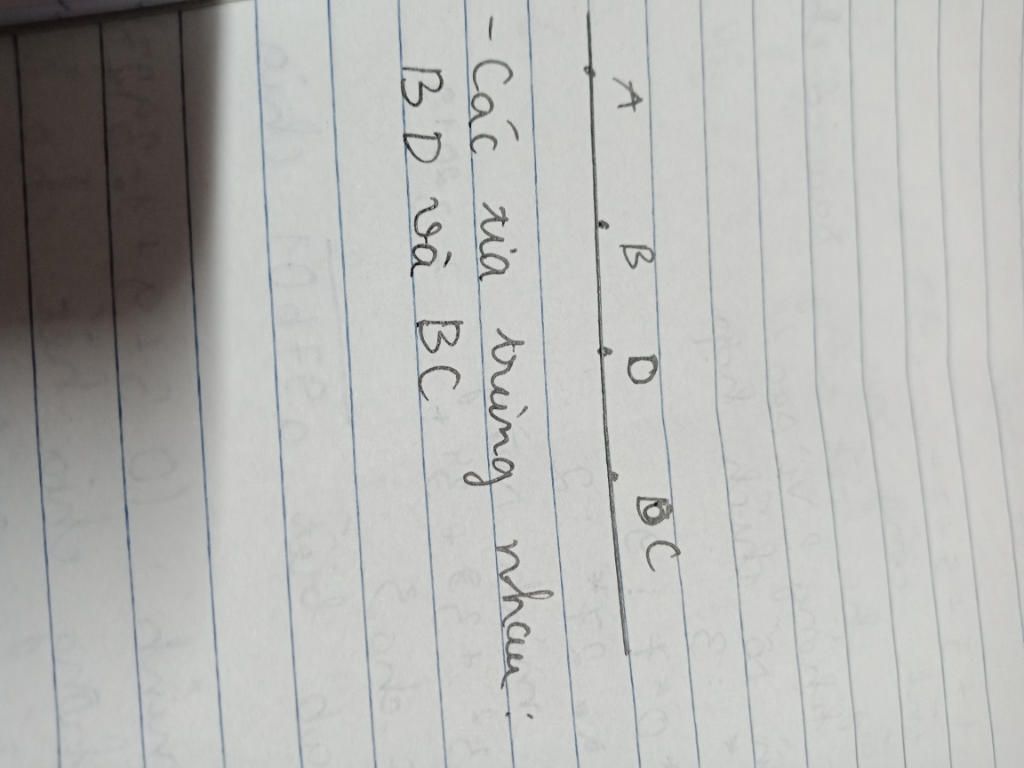 A B D C
- Các tia trùng nhau:
BD và BC